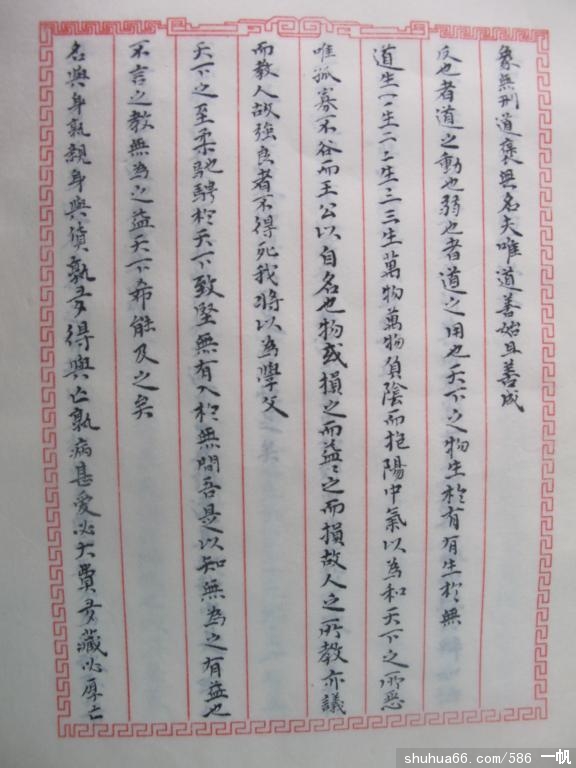 象無刑道褒無名夫唯道善始且善成
反也者道之動也弱也者道之用也天下之物生於有有生於無
道生一一生二二生三三生萬物萬物負陰而抱陽中氣以為和天下之所惡
唯孤寡不谷而王公以自名也物或損之而益益之而損故人之所教亦議
而教人故強良者不得死我將以為學父
天下之至柔馳騁於天下致堅無有入於無間吾是以知無為之有益也
不言之教無為之益天下希能及之矣
名與身孰親身與貨孰多得與亡孰病甚愛必大費多藏必厚亡
shuhua66.com/586 一帆